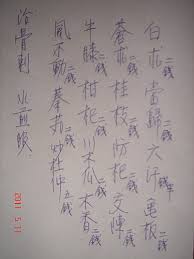 白朮二錢 當歸二錢 六汗二錢 根二錢
蒼朮二錢 桂枝二錢 防杞二錢 文陳二錢
牛膝二錢 枸杞二錢 川木瓜二錢 木香二錢
風不動二錢 秦艽 炒杜仲五錢
治骨刺 水煎服
2011 5 31